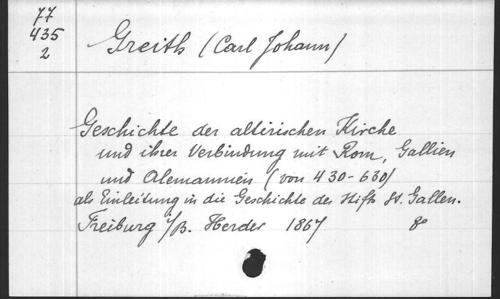 77
435
2
Greith (Carl Johann)
Geschichte der altirischen Kirche
und ihrer Verbindung mit Rom, Gallien
und Alemannien (von 430-630)
als Einleitung in die Geschichte des Stifts St. Gallen.
Freiburg i/B. Herder 1867 8o